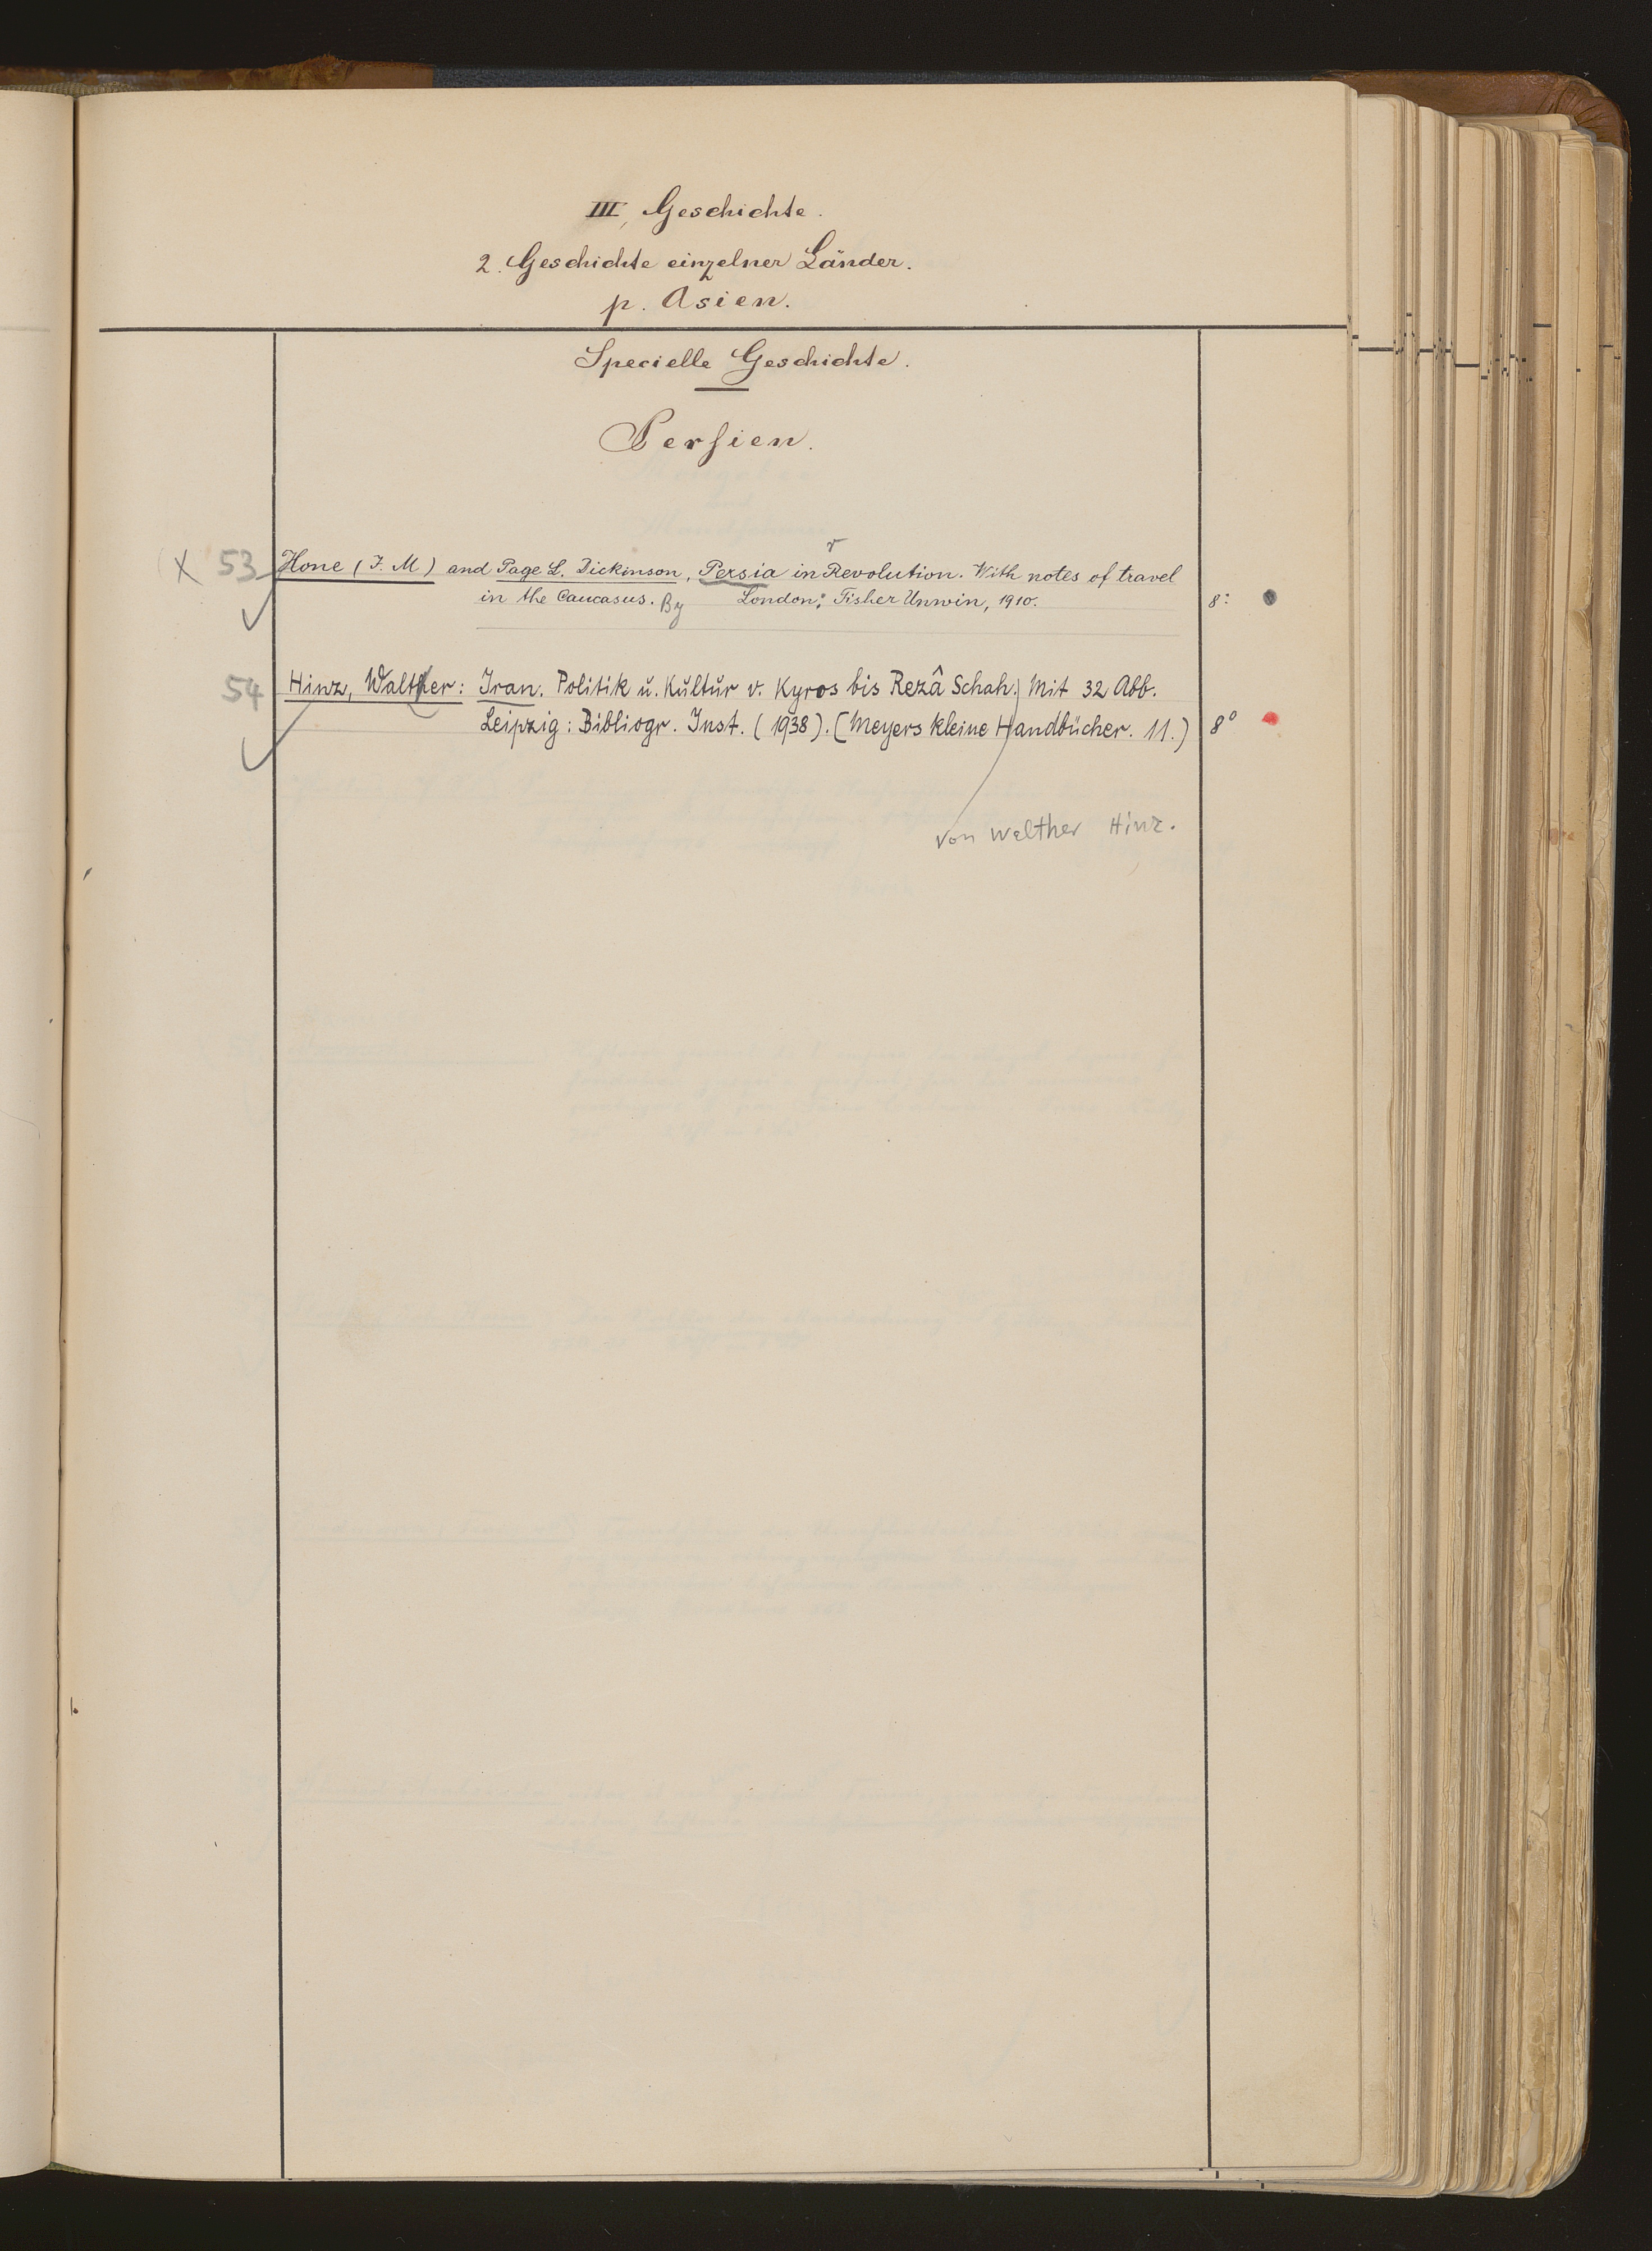 III, Geschichte.
2. Geschichte einzelner Länder.
p. Asien.
Specielle Geschichte.
Persien.
r
X 53 Hone (J. M) and Page L. Dickinson, Persia in Revolution. With notes of travel
in the Caucasus. By London: Fisher Unwin, 1910. 8:
54 Hinz, Walther: Iran. Politik u. Kultur v. Kyros bis Rezâ Schah. Mit 32 Abb.
Leipzig: Bibliogr. Inst. (1938). (Meyers kleine Handbücher. 11.) 8°
von Walther Hinz.